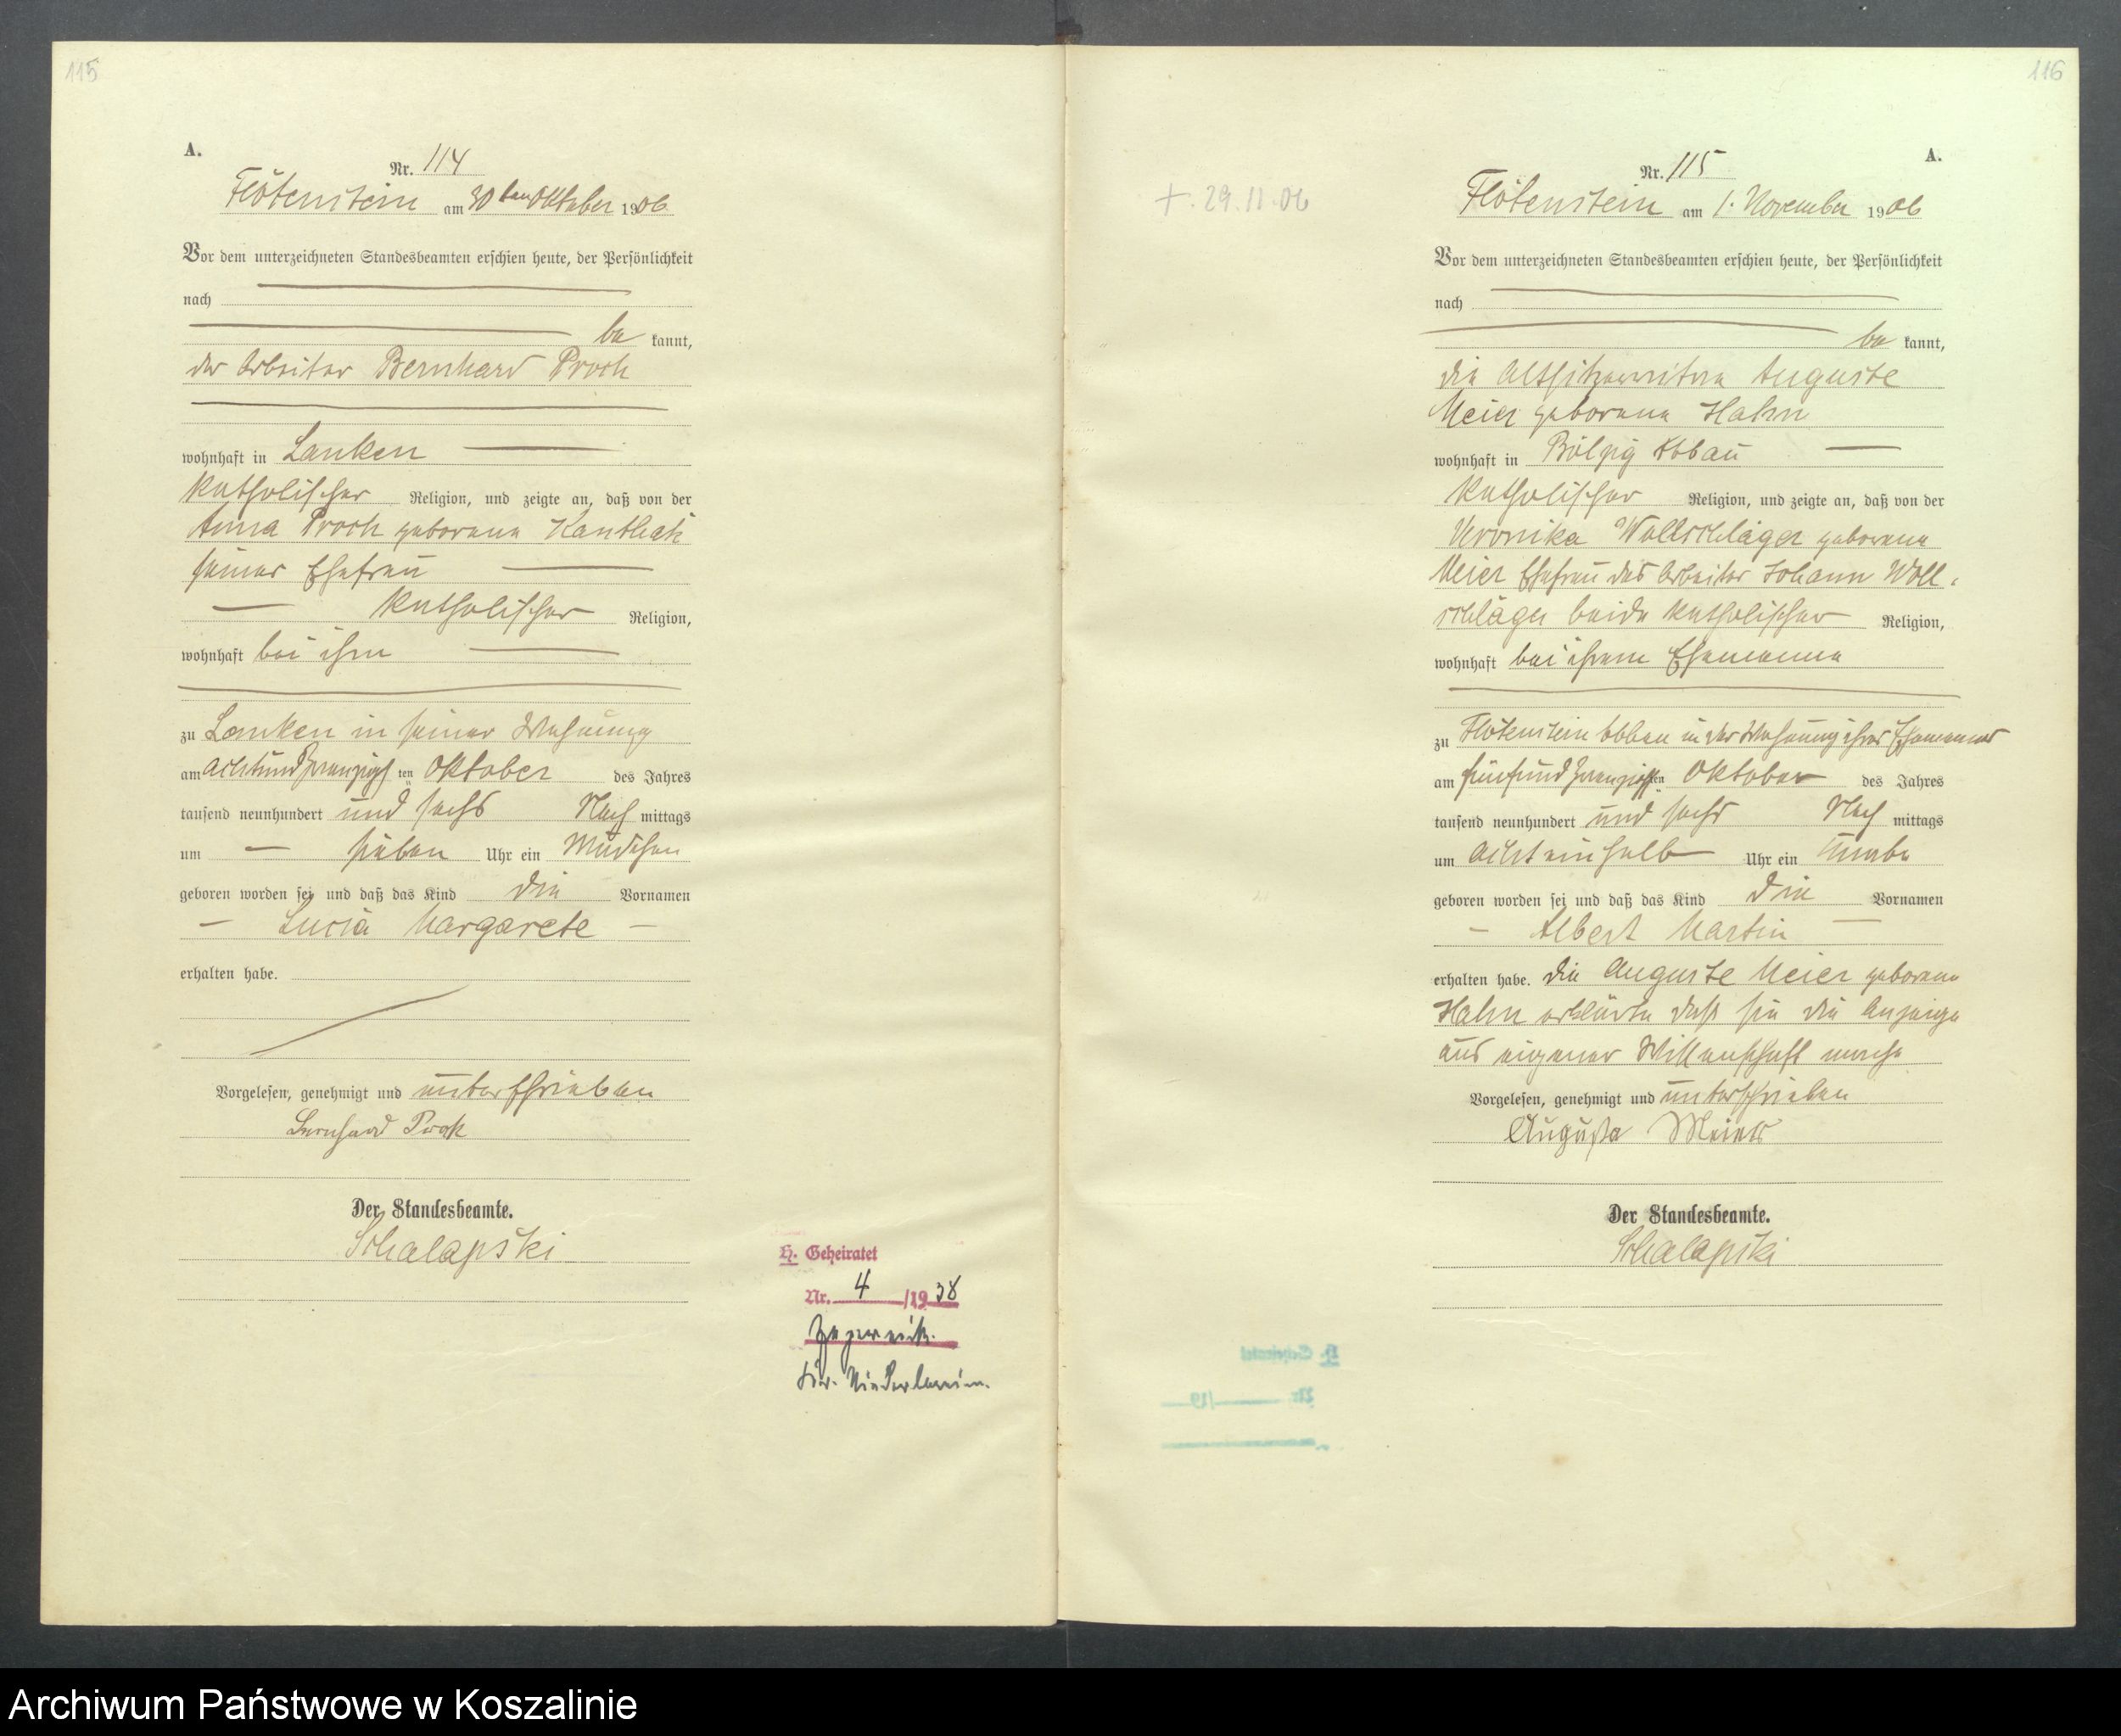 115
A.
Nr. 114
Flötenstein am 30ten Oktober 1906
Vor dem unterzeichneten Standesbeamten erschien heute, der Persönlichkeit
nach
be kannt,
der Arbeiter Bernhard Proch
wohnhaft in Lanken
katholischer Religion, und zeigte an, daß von der
Anna Proch geborene
seiner Ehefrau
katholischer Religion,
wohnhaft bei ihm
zu Lanken in seiner Wohnung
am achtundzwanzigsten Oktober des Jahres
tausend neunhundert und sechs Nach mittags
um sieben Uhr ein Mädchen
geboren worden sei und daß das Kind die Vornamen
Lucia Margarete
erhalten habe.
Vorgelesen, genehmigt und unterschrieben
Bernhard
Der Standesbeamte.
Schalapski
H. Geheiratet
Nr. 4 /1938
116
A.
Nr. 115
+. 29.11.06
Flötenstein am 1. November 1906
Vor dem unterzeichneten Standesbeamten erschien heute, der Persönlichkeit
nach
be kannt,
die Altsitzerwitwe Auguste
Meier geborene Hahn
wohnhaft in Abbau
katholischer Religion, und zeigte an, daß von der
Veronika Wollschläger geborene
Meier Ehefrau des Arbeiter Johann Woll-
schläger beide katholischer Religion,
wohnhaft bei ihrem Ehemanne
zu Flötenstein Abbau in der Wohnung ihres Ehemannes
am fünfundzwanzigsten Oktober des Jahres
tausend neunhundert und sechs Nach mittags
um achteinhalb Uhr ein Knabe
geboren worden sei und daß das Kind die Vornamen
Albert Martin
erhalten habe. Die Auguste Meier geborene
Hahn erklärte daß sie die Anzeige
aus eigener Wissenschaft mache
Vorgelesen, genehmigt und unterschrieben
Auguste
Der Standesbeamte.
Schalapski
Archiwum Państwowe w Koszalinie